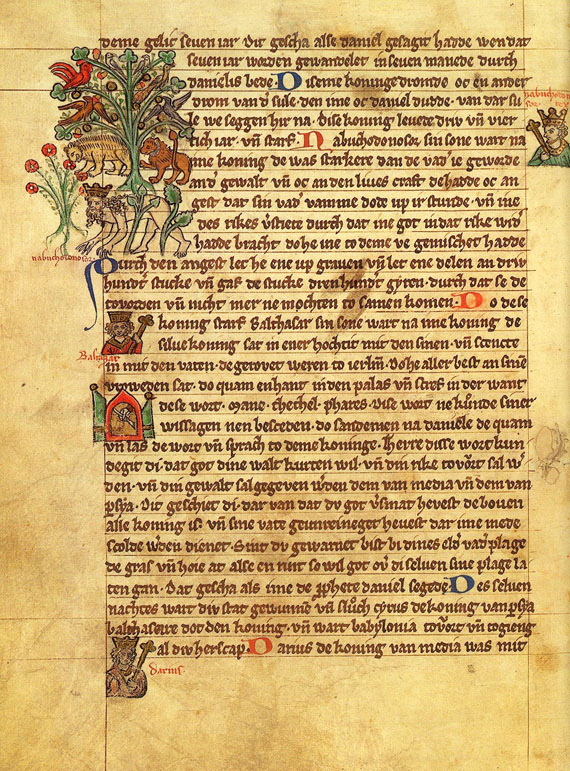 deme gelic seven iar. Dit gescha alse daniel gesagit hadde wendat
seven iar worden gewandelet in seven manede durch
danielis bede. Diseme koninge dromde oc en ander
drom van d' sule. den ime oc daniel dudde. van dar su
le we seggen hir na. Dise koning levete driv vn̄ vier
tich iar. vn̄ starf. Nabuchodonosor sin sone wart na
ime koning de was starkere dan de vad' ie geworde
an d' gewalt vn̄ oc an den lives craft. de hadde oc an
gest dat sin vad' van me dode up ir stunde. vn̄ ine
des rikes v'stiete durch dat ine got in dat rike wid'
hadde bracht do he ine to deme ve gemischet hadde
nabuchodonosor
Durch den angest let he ene up graven vn̄ let ene delen an driv
hundt stucke vn̄ gaf de stucke dren hundt gyren. durch dat se de
toworden vn̄ nicht mer ne mochten to samen komen. Do dese
koning starf Balthasar sin sone wart na ime koning. de
selve koning sat in ener hochtit mit den sinen. vn̄ scencte
Balthasar
in mit den vaten. de gerovet weren to ierl'm. Do he aller best an sinen
vroweden sat. do quam en hant in den palas vn̄ screif in der want
dese wort. Mane. thechel. phares. Dise wort ne kunde siner
wissagen nen besceden. do sande men na daniele de quam
vn̄ las de wort vn̄ sprach to deme koninge. Herre disse wort kun
degit di. dat got dine walt kurten wil. vn̄ din rike tovort sal w'
den. vn̄ din gewalt sal gegeven w'den dem van media vn̄ dem van
p'sya. Dit geschiet di. dar van dat du got v'smat hevest de boven
alle koning is. vn̄ sine vate geunreineget hevest dar ime mede
scolde w'den dienet. Sint du gewarnet bist bi dines eld' vad' plage
de gras vn̄ hoie at alse en rint so wil got ov' di selven sine plage la
ten gan. Dat gescha als ime de p'phete daniel segede. Des selven
nachtes wart div stat gewunne vn̄ sluch cyrus de koning van p'sya
balthasare dot den koning. vn̄ wart babylonia tovort vn̄ togieng
al div herscap. Darius de koning van media was mit
darius.
nabuchodo
nosor rex